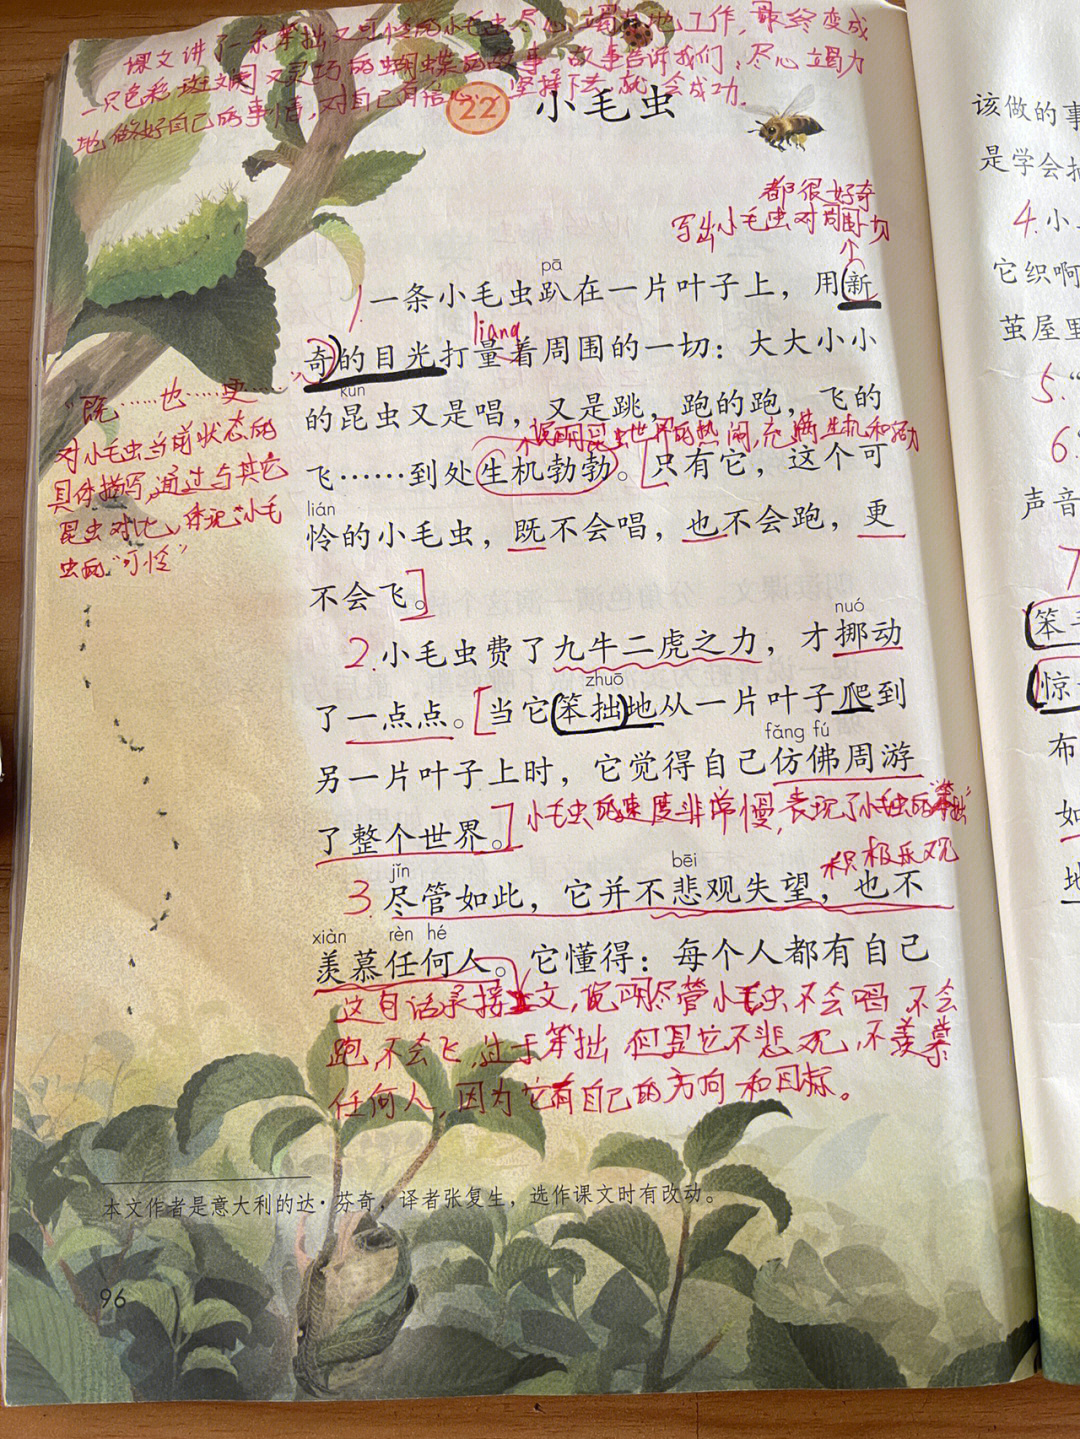 课文讲了一条笨拙又可怜的小毛虫尽心竭力地工作，最终变成
一只色彩斑斓又灵巧的蝴蝶的故事。故事告诉我们：尽心竭力
地做好自己的事情，对自己有信心，坚持下去，就会成功。
22 小毛虫
都很好奇
写出小毛虫对周围一切
pā
1 一条小毛虫趴在一片叶子上，用新
liang
奇的目光打量着周围的一切：大大小小
kūn
的昆虫又是唱，又是跳，跑的跑，飞的
说明昆虫世界的热闹，充满生机和活力
飞……到处生机勃勃。只有它，这个可
lián
怜的小毛虫，既不会唱，也不会跑，更
不会飞。
“既……也……更……”
对小毛虫当前状态的
具体描写，通过与其它
昆虫对比，体现小毛
虫的“可怜”
nuó
2. 小毛虫费了九牛二虎之力，才挪动
zhuō
了一点点。当它笨拙地从一片叶子爬到
fǎng fú
另一片叶子上时，它觉得自己仿佛周游
了整个世界。
小毛虫的速度非常慢，表现了小毛虫的“笨拙”
积极乐观
jǐn bēi
3. 尽管如此，它并不悲观失望，也不
xiàn rèn hé
羡慕任何人。它懂得：每个人都有自己
这句话承接上文，说明尽管小毛虫不会唱，不会
跑，不会飞，过于笨拙，但是它不悲观，不羡慕
任何人，因为它有自己的方向和目标。
本文作者是意大利的达·芬奇，译者张复生，选作课文时有改动。
96
该做的事
是学会
4. 小
它织啊
茧屋里
5. “
6. “
声音
7
笨
惊
布
如
地